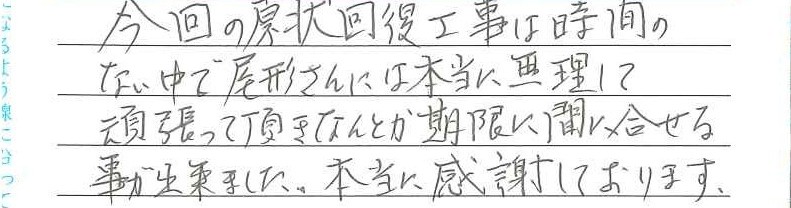 今回の原状回復工事は時間の
ない中で尾形さんには本当に無理して
頑張って頂きなんとか期限に間に合せる
事が出来ました。本当に感謝しております。
なるよう線に沿って